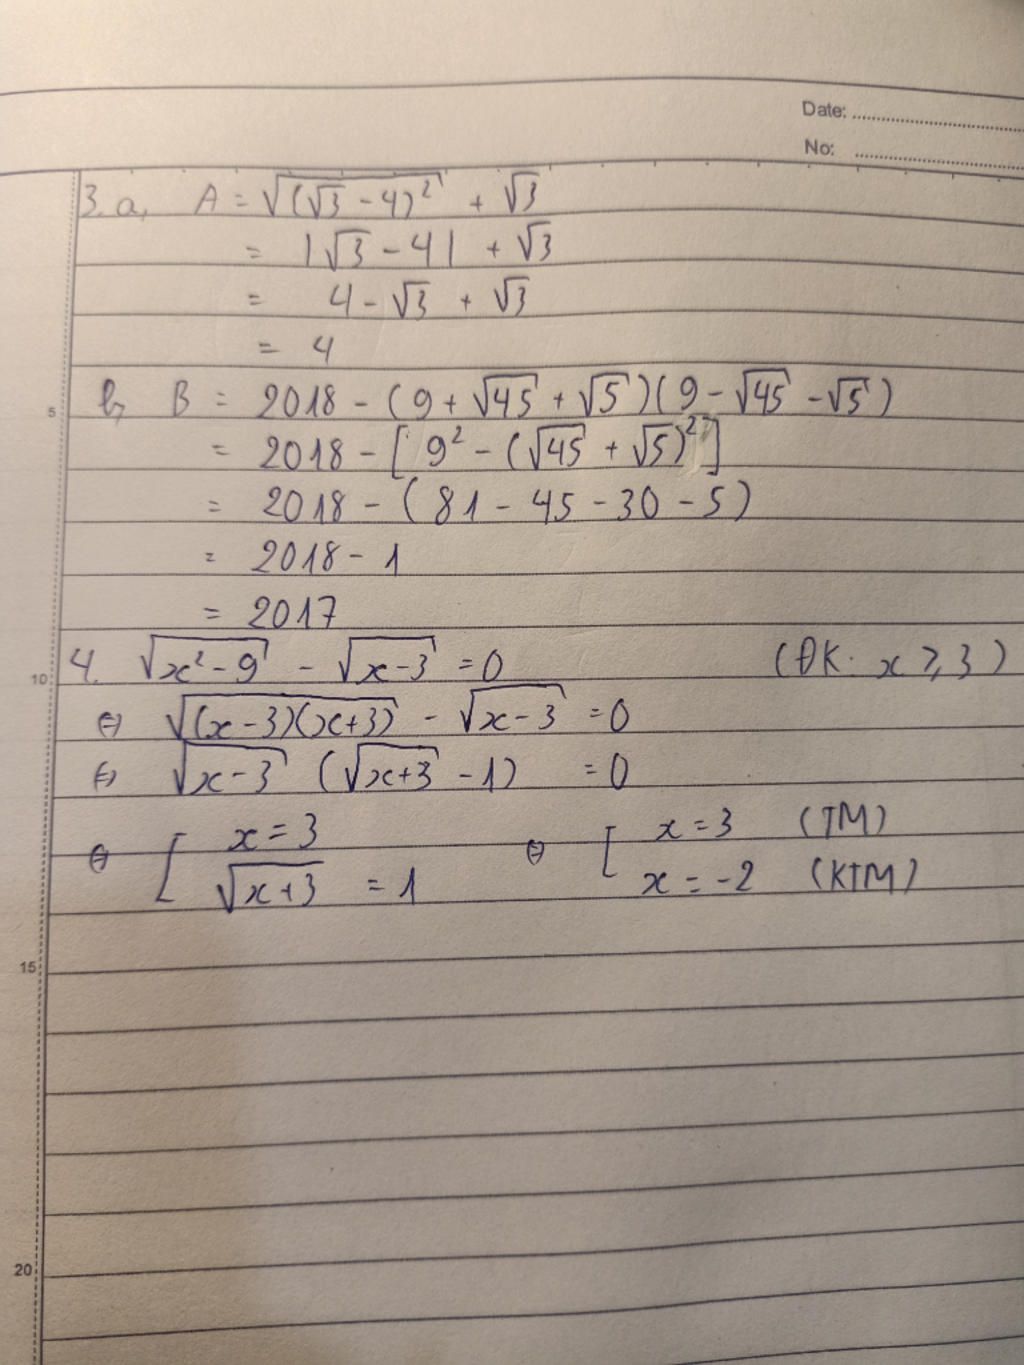 Date: ...........................
No: ...........................
3. a, A = √((√3 - 4)²) + √3
= |√3 - 4| + √3
= 4 - √3 + √3
= 4
5
b, B = 2018 - (9 + √45 + √5)(9 - √45 - √5)
= 2018 - [9² - (√45 + √5)²]
= 2018 - (81 - 45 - 30 - 5)
= 2018 - 1
= 2017
10
4. √(x² - 9) - √(x - 3) = 0 (ĐK: x ⩾ 3)
⇔ √((x - 3)(x + 3)) - √(x - 3) = 0
⇔ √(x - 3) (√(x + 3) - 1) = 0
⇔ [ x = 3 ⇔ [ x = 3 (TM)
√(x + 3) = 1 x = -2 (KTM)
15
20